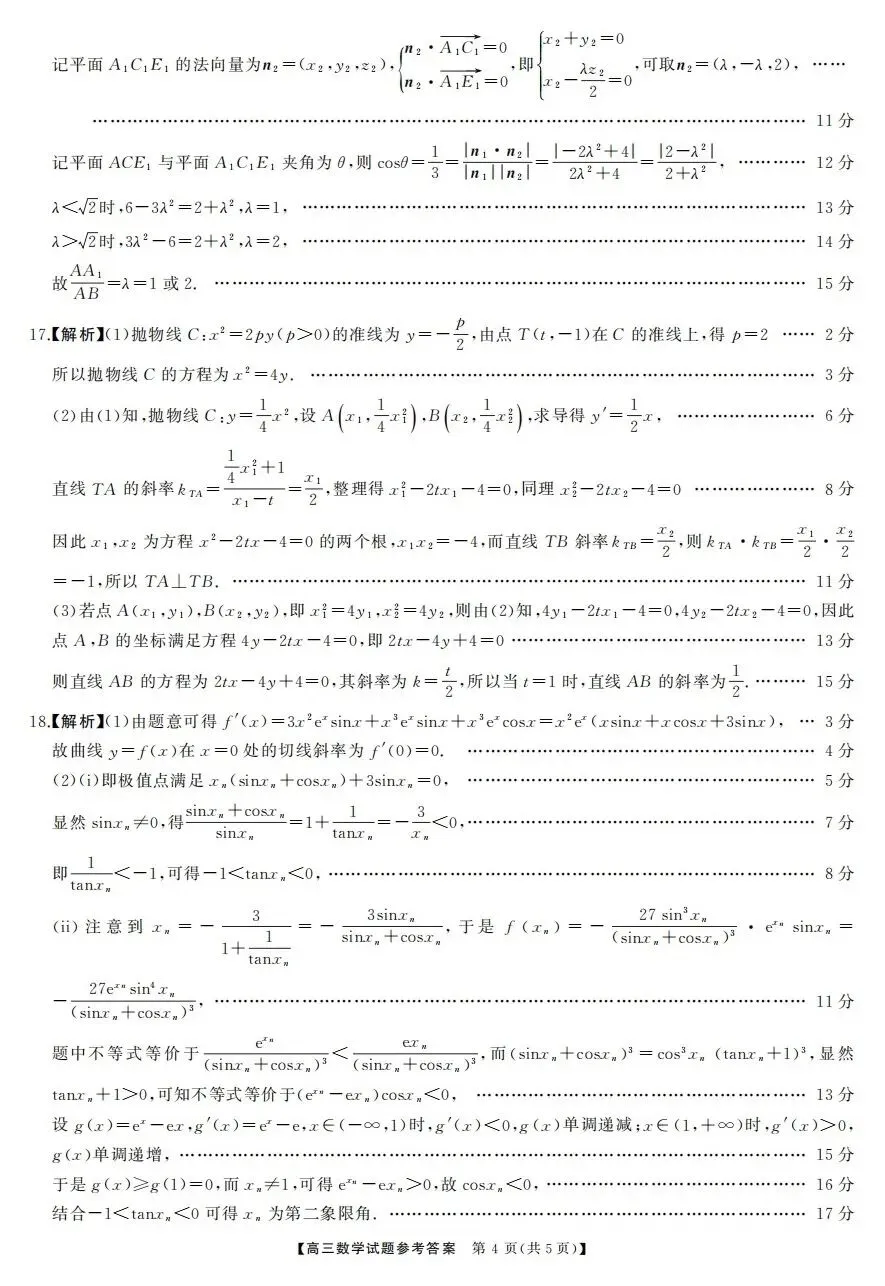 记平面 A₁C₁E₁ 的法向量为n₂=(x₂,y₂,z₂),{n₂·A₁C₁→=0, n₂·A₁E₁→=0,即{x₂+y₂=0, x₂-λz₂/2=0,可取n₂=(λ,-λ,2), ……
…………………………………………………………………………………… 11 分
记平面 ACE₁ 与平面 A₁C₁E₁ 夹角为 θ,则 cosθ=1/3=|n₁·n₂|/(|n₁||n₂|)=|-2λ²+4|/(2λ²+4)=|2-λ²|/(2+λ²), ………… 12 分
λ<√2时,6-3λ²=2+λ²,λ=1, …………………………………………………… 13 分
λ>√2时,3λ²-6=2+λ²,λ=2, …………………………………………………… 14 分
故AA₁/AB=λ=1 或 2. …………………………………………………………… 15 分
17.【解析】(1)抛物线 C:x²=2py(p>0)的准线为 y=-p/2,由点 T(t,-1)在 C 的准线上,得 p=2 …… 2 分
所以抛物线 C 的方程为 x²=4y. …………………………………………………… 3 分
(2)由(1)知,抛物线 C:y=1/4x²,设 A(x₁,1/4x₁²),B(x₂,1/4x₂²),求导得 y′=1/2x, …………………… 6 分
直线 TA 的斜率 k_TA=(1/4x₁²+1)/(x₁-t)=x₁/2,整理得 x₁²-2tx₁-4=0,同理 x₂²-2tx₂-4=0 ………………… 8 分
因此 x₁,x₂ 为方程 x²-2tx-4=0 的两个根,x₁x₂=-4,而直线 TB 斜率 k_TB=x₂/2,则 k_TA·k_TB=x₁/2·x₂/2
=-1,所以 TA⊥TB. …………………………………………………………… 11 分
(3)若点 A(x₁,y₁),B(x₂,y₂),即 x₁²=4y₁,x₂²=4y₂,则由(2)知,4y₁-2tx₁-4=0,4y₂-2tx₂-4=0,因此
点 A,B 的坐标满足方程 4y-2tx-4=0,即 2tx-4y+4=0 …………………………………… 13 分
则直线 AB 的方程为 2tx-4y+4=0,其斜率为 k=t/2,所以当 t=1 时,直线 AB 的斜率为1/2. ……… 15 分
18.【解析】(1)由题意可得 f′(x)=3x²eˣsinx+x³eˣsinx+x³eˣcosx=x²eˣ(xsinx+xcosx+3sinx), … 3 分
故曲线 y=f(x)在 x=0 处的切线斜率为 f′(0)=0. …………………………………… 4 分
(2)(i)即极值点满足 xₙ(sinxₙ+cosxₙ)+3sinxₙ=0, …………………………………… 5 分
显然 sinxₙ≠0,得(sinxₙ+cosxₙ)/sinxₙ=1+1/tanxₙ=-3/xₙ<0,…………………………………… 7 分
即1/tanxₙ<-1,可得-1<tanxₙ<0, …………………………………………………… 8 分
(ii)注意到 xₙ=-3/(1+1/tanxₙ)=-3sinxₙ/(sinxₙ+cosxₙ),于是 f(xₙ)=-27sin³xₙ/(sinxₙ+cosxₙ)³·e^(xₙ)sinxₙ=
-27e^(xₙ)sin⁴xₙ/(sinxₙ+cosxₙ)³, …………………………………………………………… 11 分
题中不等式等价于e^(xₙ)/(sinxₙ+cosxₙ)³<exₙ/(sinxₙ+cosxₙ)³,而(sinxₙ+cosxₙ)³=cos³xₙ(tanxₙ+1)³,显然
tanxₙ+1>0,可知不等式等价于(e^(xₙ)-exₙ)cosxₙ<0, …………………………………… 13 分
设 g(x)=eˣ-ex,g′(x)=eˣ-e,x∈(-∞,1)时,g′(x)<0,g(x)单调递减;x∈(1,+∞)时,g′(x)>0,
g(x)单调递增, …………………………………………………………………… 15 分
于是 g(x)≥g(1)=0,而 xₙ≠1,可得 e^(xₙ)-exₙ>0,故 cosxₙ<0,……………………………… 16 分
结合-1<tanxₙ<0 可得 xₙ 为第二象限角. …………………………………………… 17 分
【高三数学试题参考答案 第 4 页(共 5 页)】